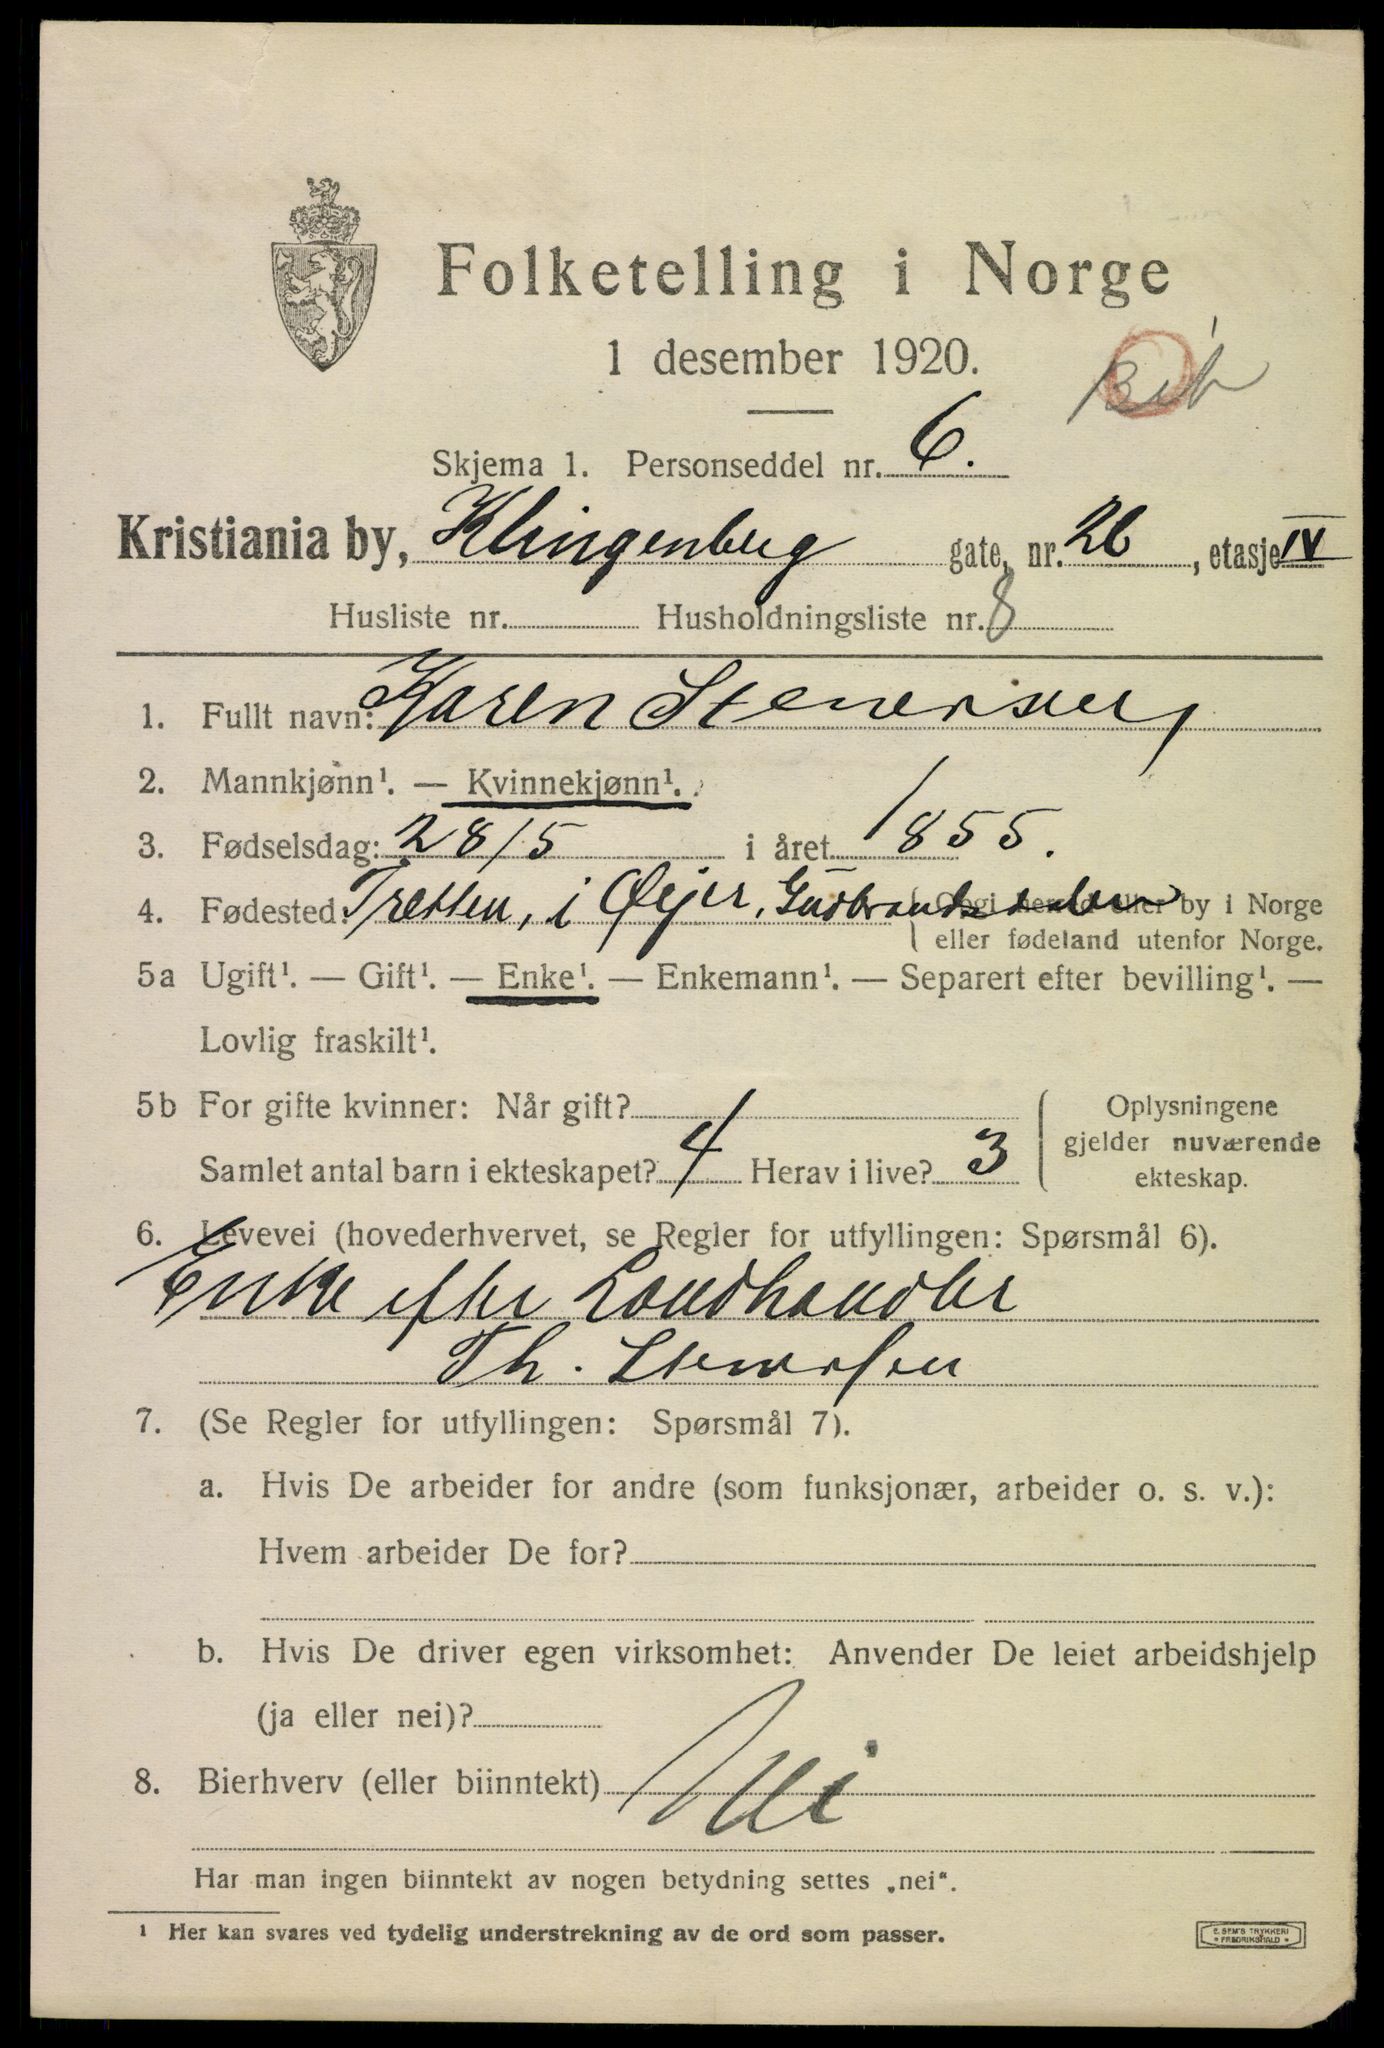 Folketelling i Norge
1 desember 1920.
Skjema 1. Personseddel nr. 6.
Kristiania by, Klingenberg gate, nr. 26, etasje IV
Husliste nr. Husholdningsliste nr. 8
1. Fullt navn: Karen Stenersen
2. Mannkjønn¹. — Kvinnekjønn¹.
3. Fødselsdag: 28/5 i året 1855.
4. Fødested: Tretten, i Øejer, Gudbrandsdalen (Opgi herred eller by i Norge
eller fødeland utenfor Norge.
5a Ugift¹. — Gift¹. — Enke¹. — Enkemann¹. — Separert efter bevilling¹. —
Lovlig fraskilt¹.
5b For gifte kvinner: Når gift?
Samlet antal barn i ekteskapet? 4 Herav i live? 3
Oplysningene
gjelder nuværende
ekteskap.
6. Levevei (hovederhvervet, se Regler for utfyllingen: Spørsmål 6).
Enke efter Landhandler
Th. Stenersen
7. (Se Regler for utfyllingen: Spørsmål 7).
a. Hvis De arbeider for andre (som funksjonær, arbeider o. s. v.):
Hvem arbeider De for?
b. Hvis De driver egen virksomhet: Anvender De leiet arbeidshjelp
(ja eller nei)?
8. Bierhverv (eller biinntekt) Nei
Har man ingen biinntekt av nogen betydning settes „nei“.
¹ Her kan svares ved tydelig understrekning av de ord som passer.
E. SEM'S TRYKKERI
• FREDRIKSHALD •